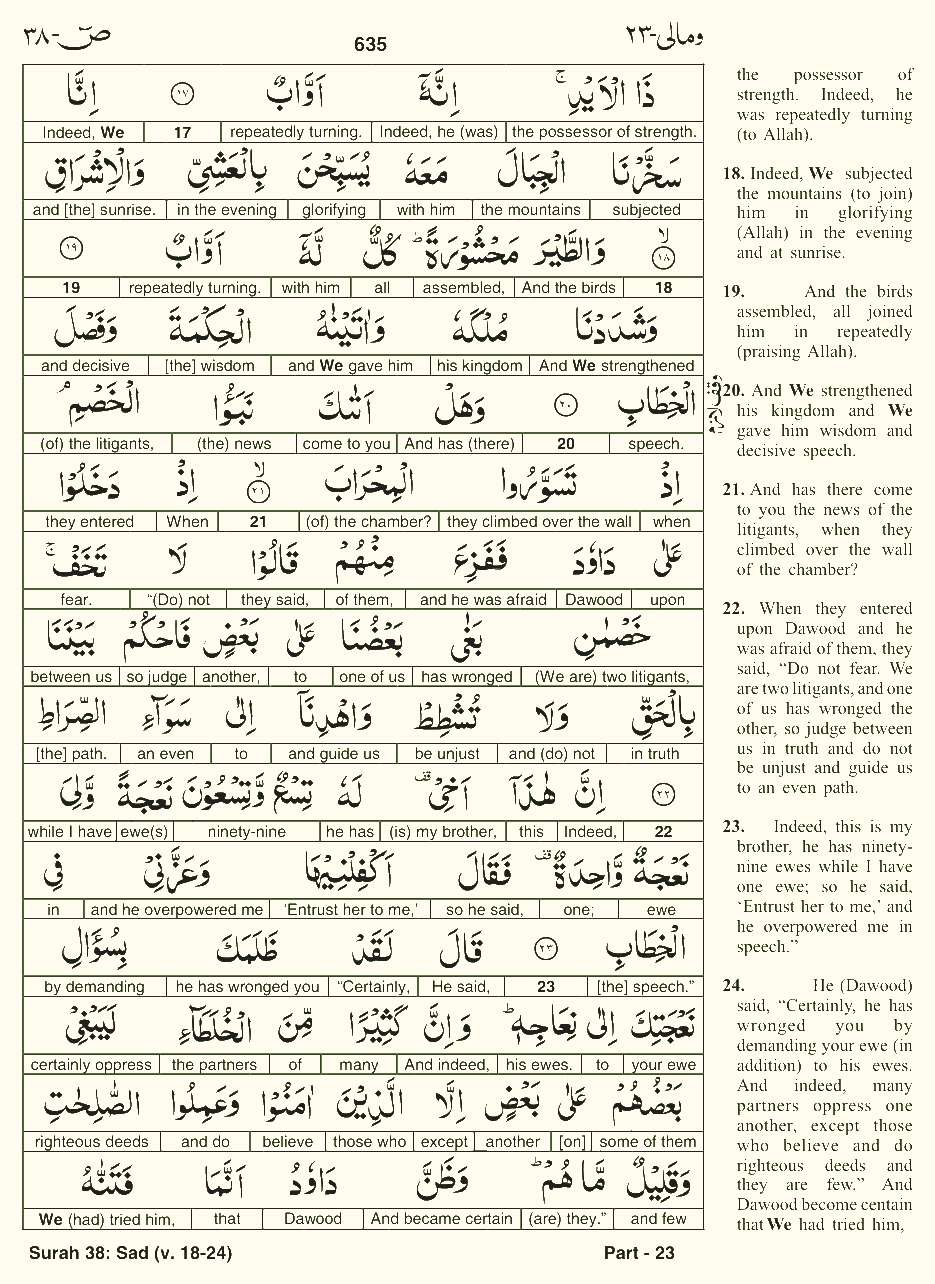 ص-٣٨
635
ومالى-٢٣
ذَا الْاَيْدِ ۚ اِنَّهٗٓ اَوَّابٌ ١٧ اِنَّا
Indeed, We 17 repeatedly turning. Indeed, he (was) the possessor of strength.
سَخَّرْنَا الْجِبَالَ مَعَهٗ يُسَبِّحْنَ بِالْعَشِيِّ وَالْاِشْرَاقِ
and [the] sunrise. in the evening glorifying with him the mountains subjected
١٨ ۙ وَالطَّيْرَ مَحْشُوْرَةً ؕ كُلٌّ لَّهٗٓ اَوَّابٌ ١٩
19 repeatedly turning. with him all assembled, And the birds 18
وَشَدَدْنَا مُلْكَهٗ وَاٰتَيْنٰهُ الْحِكْمَةَ وَفَصْلَ
and decisive [the] wisdom and We gave him his kingdom And We strengthened
الْخِطَابِ ٢٠ وَهَلْ اَتٰىكَ نَبَؤُا الْخَصْمِ ۘ
(of) the litigants, (the) news come to you And has (there) 20 speech.
اِذْ تَسَوَّرُوا الْمِحْرَابَ ٢١ ۙ اِذْ دَخَلُوْا
they entered When 21 (of) the chamber? they climbed over the wall when
عَلٰى دَاوٗدَ فَفَزِعَ مِنْهُمْ قَالُوْا لَا تَخَفْ ۚ
fear. “(Do) not they said, of them, and he was afraid Dawood upon
خَصْمٰنِ بَغٰى بَعْضُنَا عَلٰى بَعْضٍ فَاحْكُمْ بَيْنَنَا
between us so judge another, to one of us has wronged (We are) two litigants,
بِالْحَقِّ وَلَا تُشْطِطْ وَاهْدِنَآ اِلٰى سَوَآءِ الصِّرَاطِ
[the] path. an even to and guide us be unjust and (do) not in truth
٢٢ اِنَّ هٰذَآ اَخِيْ ۫ لَهٗ تِسْعٌ وَّتِسْعُوْنَ نَعْجَةً وَّلِيَ
while I have ewe(s) ninety-nine he has (is) my brother, this Indeed, 22
نَعْجَةٌ وَّاحِدَةٌ ۫ فَقَالَ اَكْفِلْنِيْهَا وَعَزَّنِيْ فِي
in and he overpowered me ‘Entrust her to me,’ so he said, one; ewe
الْخِطَابِ ٢٣ قَالَ لَقَدْ ظَلَمَكَ بِسُؤَالِ
by demanding he has wronged you “Certainly, He said, 23 [the] speech.”
نَعْجَتِكَ اِلٰى نِعَاجِهٖ ؕ وَاِنَّ كَثِيْرًا مِّنَ الْخُلَطَآءِ لَيَبْغِيْ
certainly oppress the partners of many And indeed, his ewes. to your ewe
بَعْضُهُمْ عَلٰى بَعْضٍ اِلَّا الَّذِيْنَ اٰمَنُوْا وَعَمِلُوا الصّٰلِحٰتِ
righteous deeds and do believe those who except another [on] some of them
وَقَلِيْلٌ مَّا هُمْ ؕ وَظَنَّ دَاوٗدُ اَنَّمَا فَتَنّٰهُ
We (had) tried him, that Dawood And became certain (are) they.” and few
the possessor of
strength. Indeed, he
was repeatedly turning
(to Allah).
18. Indeed, We subjected
the mountains (to join)
him in glorifying
(Allah) in the evening
and at sunrise.
19. And the birds
assembled, all joined
him in repeatedly
(praising Allah).
20. And We strengthened
his kingdom and We
gave him wisdom and
decisive speech.
21. And has there come
to you the news of the
litigants, when they
climbed over the wall
of the chamber?
22. When they entered
upon Dawood and he
was afraid of them, they
said, “Do not fear. We
are two litigants, and one
of us has wronged the
other, so judge between
us in truth and do not
be unjust and guide us
to an even path.
23. Indeed, this is my
brother, he has ninety-
nine ewes while I have
one ewe; so he said,
‘Entrust her to me,’ and
he overpowered me in
speech.”
24. He (Dawood)
said, “Certainly, he has
wronged you by
demanding your ewe (in
addition) to his ewes.
And indeed, many
partners oppress one
another, except those
who believe and do
righteous deeds and
they are few.” And
Dawood become centain
that We had tried him,
Surah 38: Sad (v. 18-24)
Part - 23